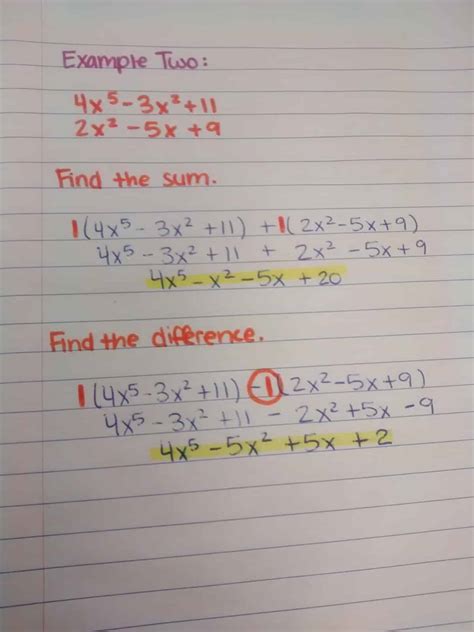 Example Two:
4x⁵ - 3x² + 11
2x² - 5x + 9
Find the sum.
1(4x⁵ - 3x² + 11) + 1(2x² - 5x + 9)
4x⁵ - 3x² + 11 + 2x² - 5x + 9
4x⁵ - x² - 5x + 20
Find the difference.
1(4x⁵ - 3x² + 11) - 1(2x² - 5x + 9)
4x⁵ - 3x² + 11 - 2x² + 5x - 9
4x⁵ - 5x² + 5x + 2